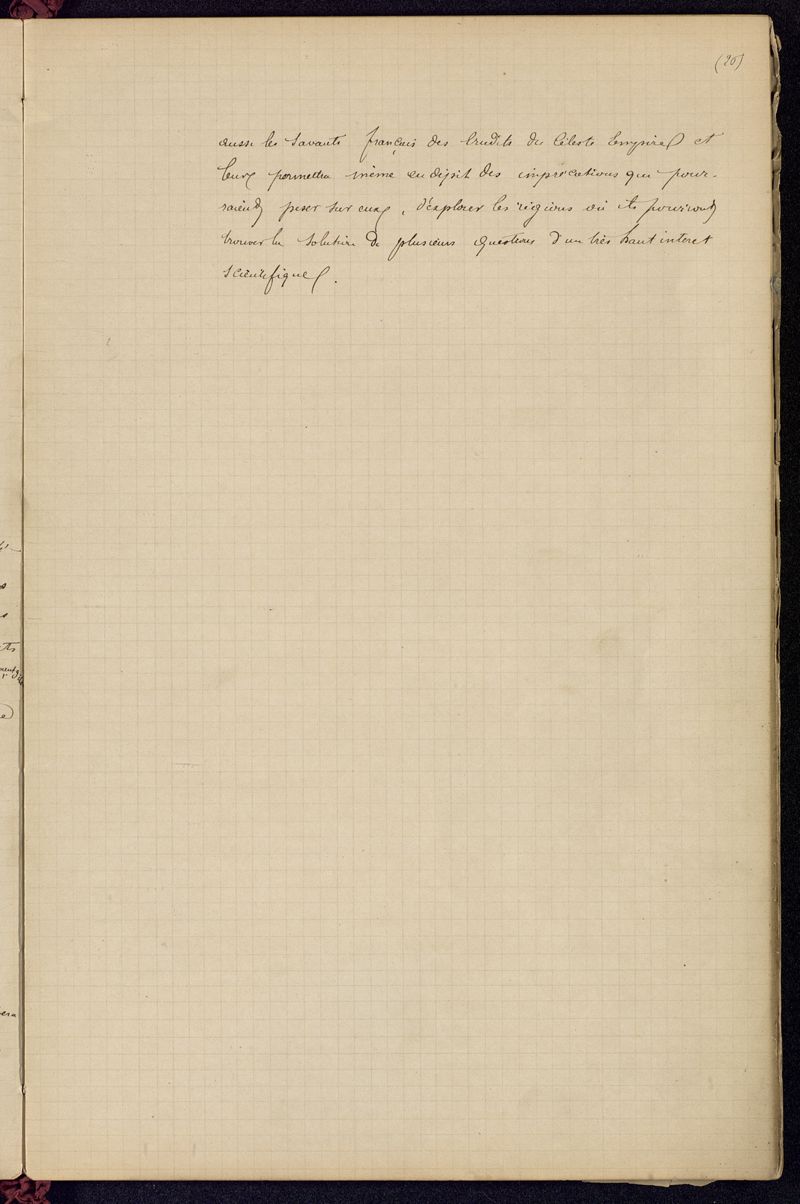 (20)
aussi les savants français des Erudits du Céleste Empire et
leur permettra même en dépit des imprécations qui pour-
raient peser sur eux, d'explorer les régions où ils pourront
trouver la solution de plusieurs questions d'un très haut interet
scientifique.